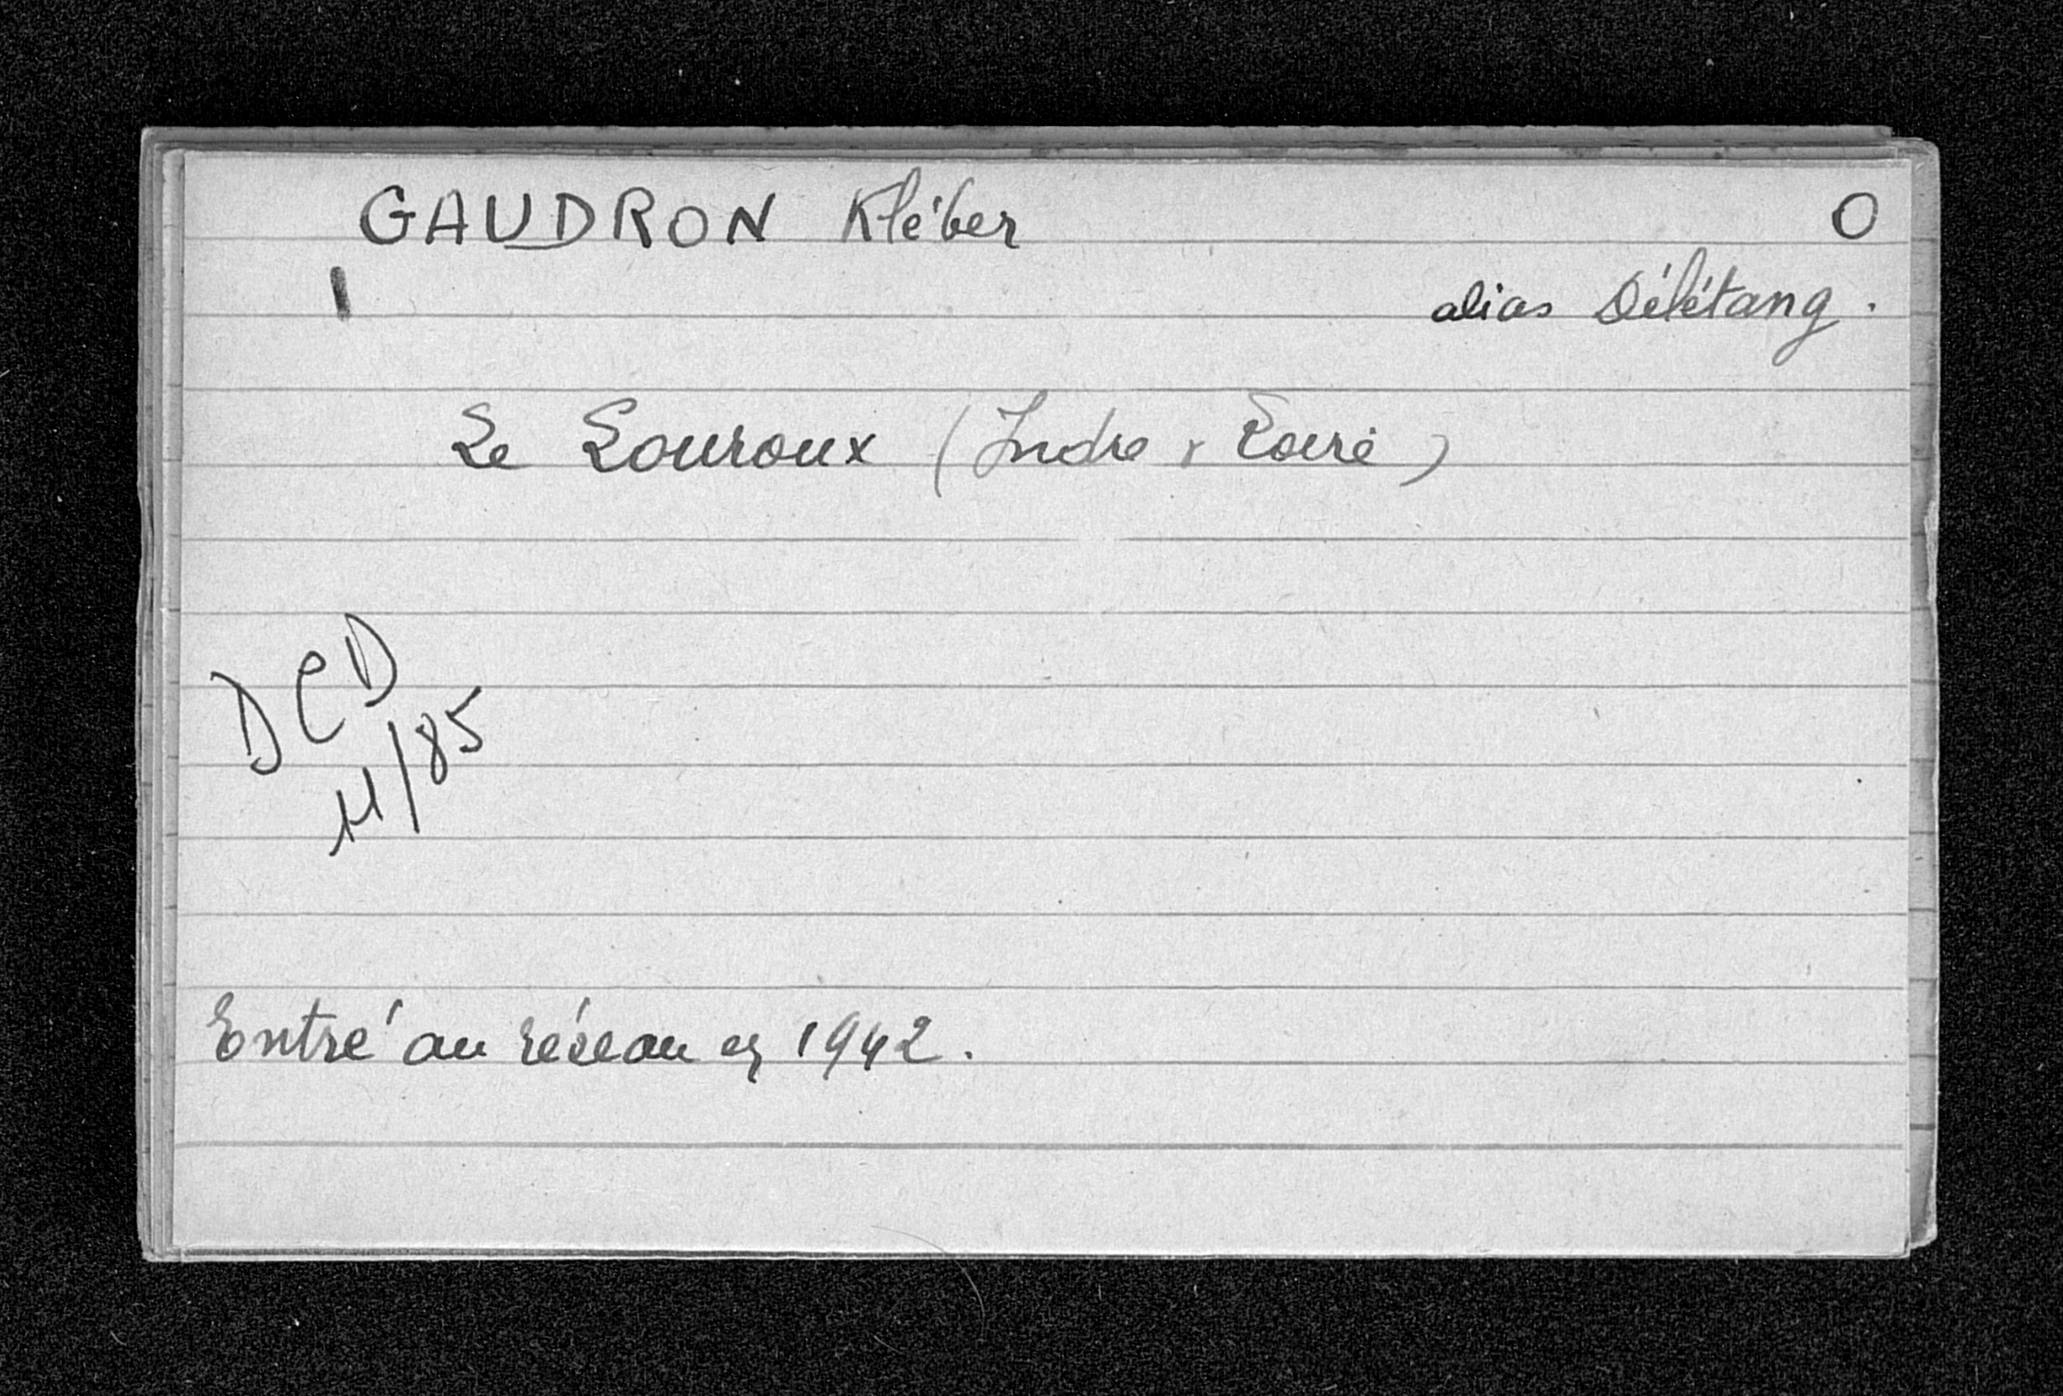 GAUDRON Kléber O
alias Délétang.
Le Louroux (Indre & Loire)
DCD
11/85
Entré au réseau en 1942.